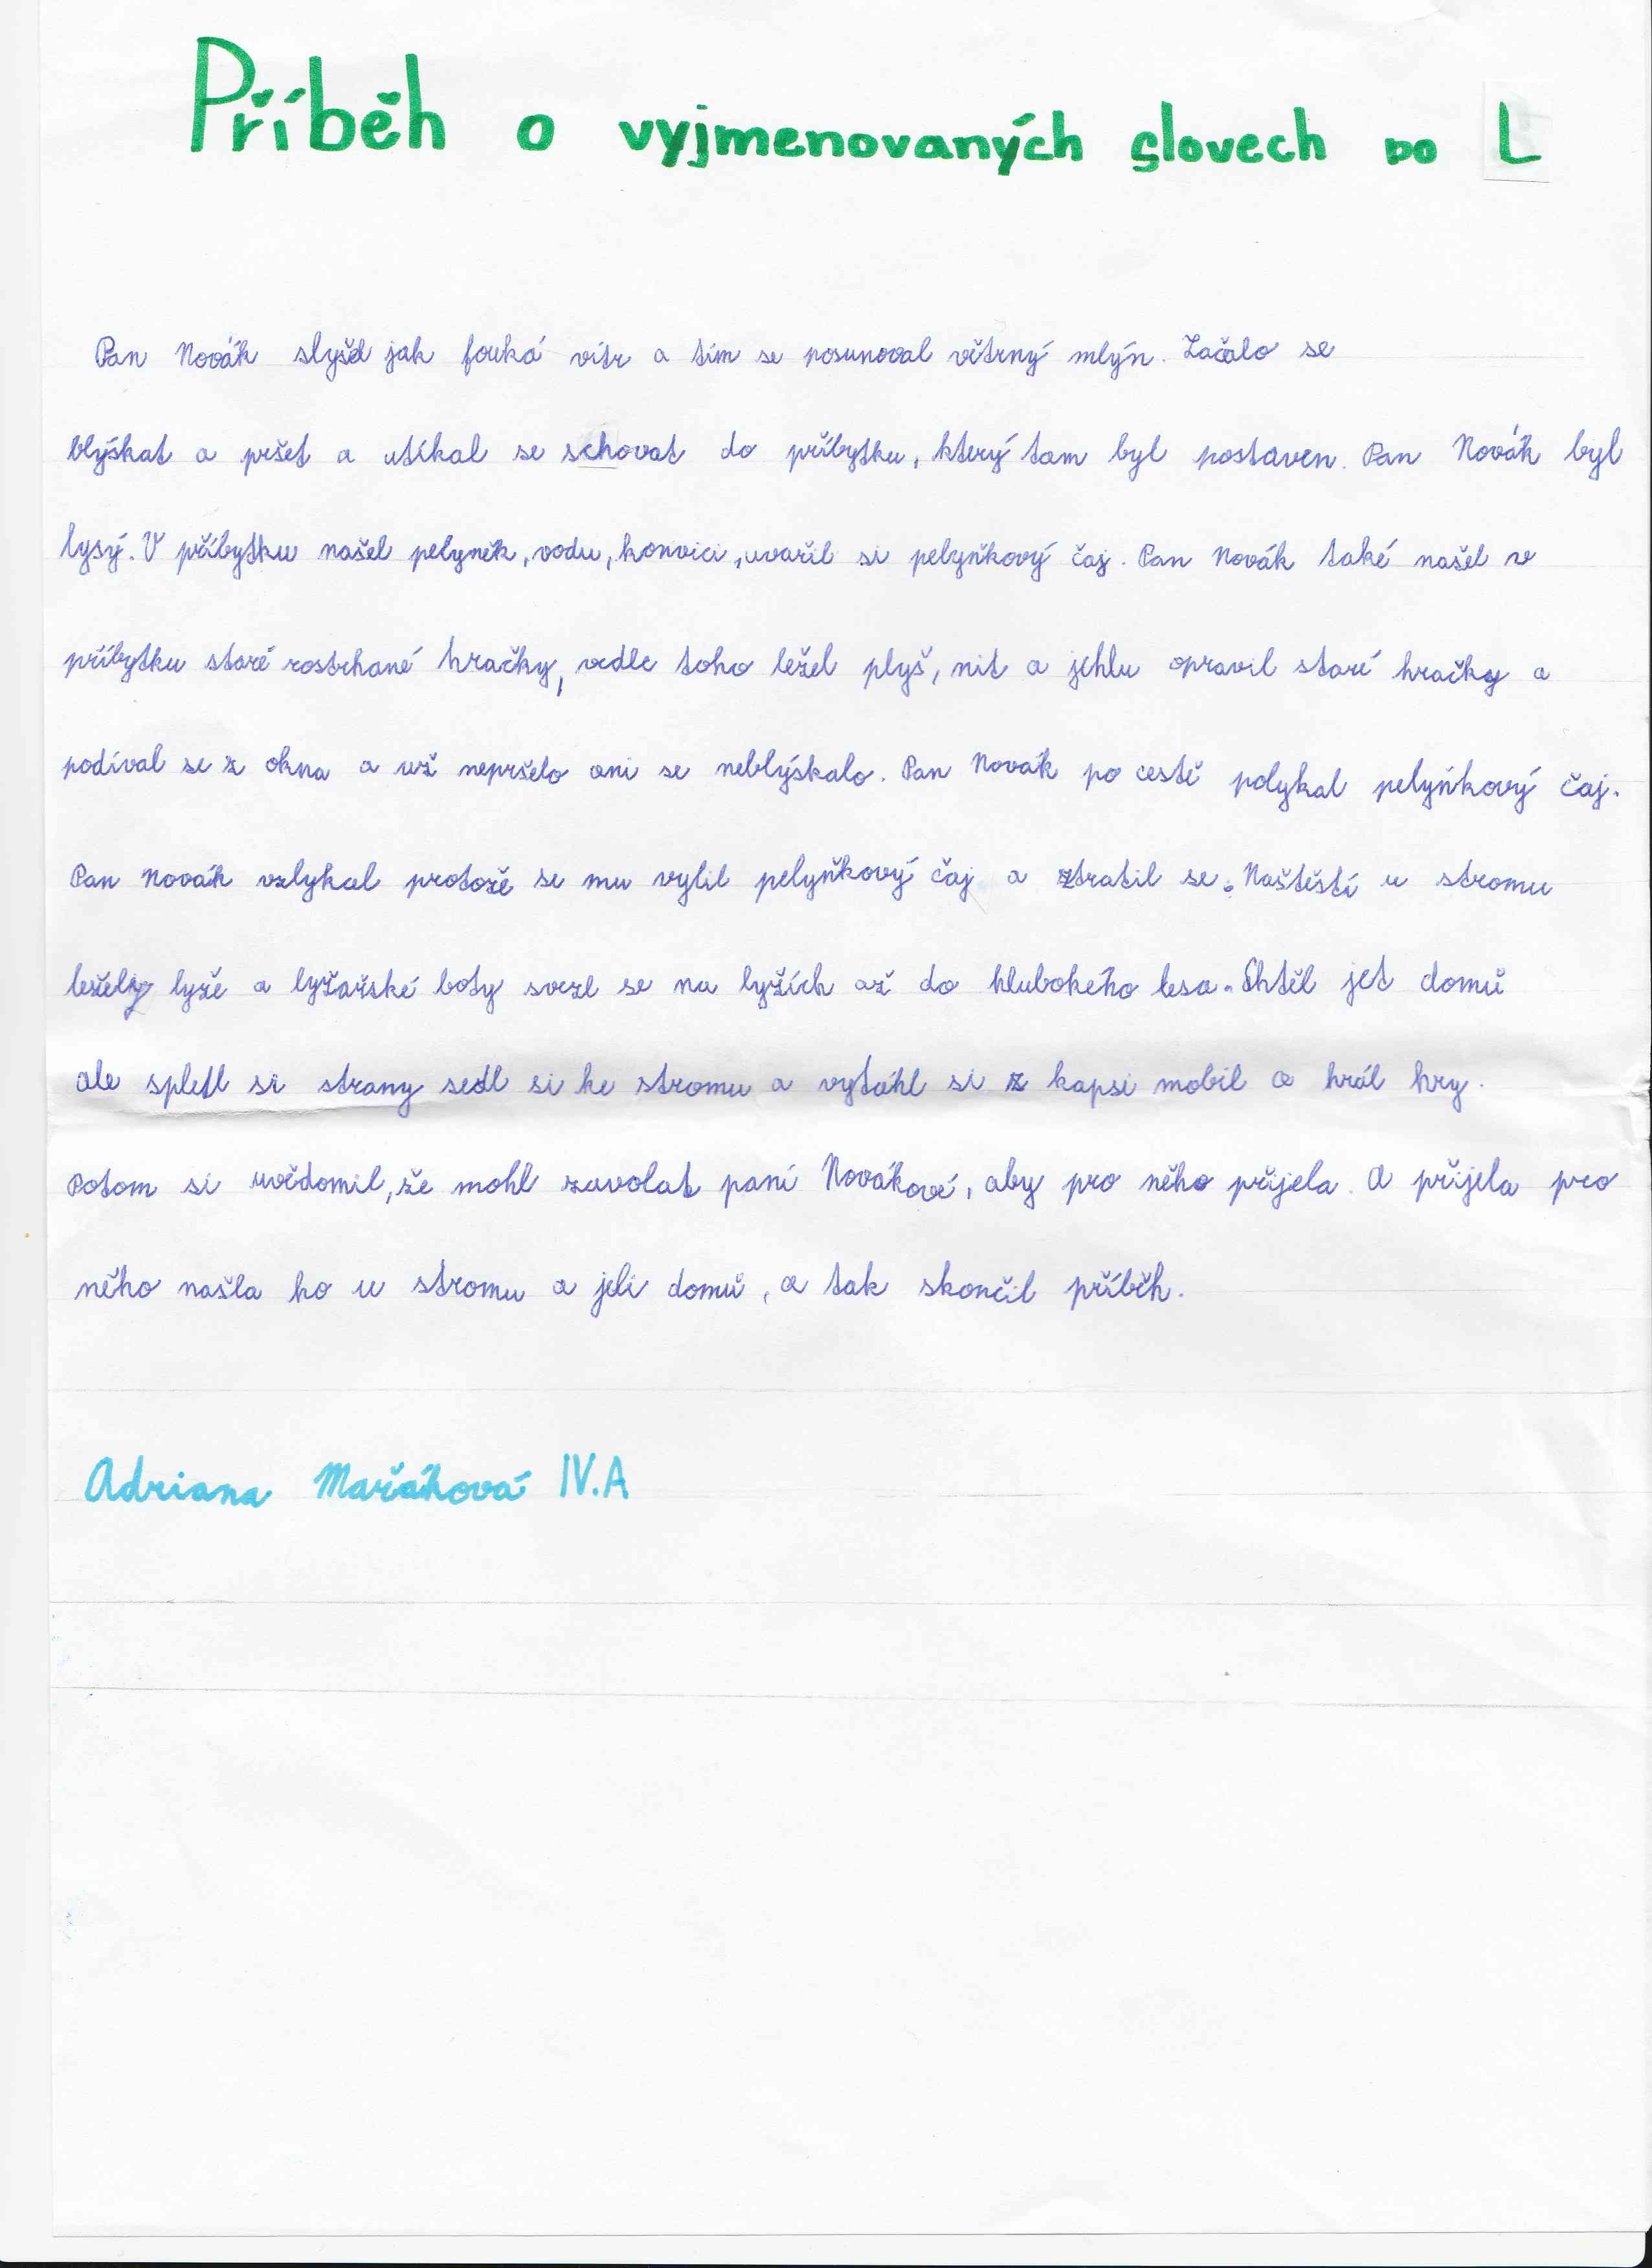 Příběh o vyjmenovaných slovech po L
Pan Novák slyšel jak fouká vítr a tím se posunoval větrný mlýn. Začalo se
blýskat a pršet a utíkal se schovat do příbytku, který tam byl postaven. Pan Novák byl
lysý. V příbytku našel pelyněk, vodu, konvici, uvařil si pelyňkový čaj. Pan Novák také našel v
příbytku staré rostrhané hračky, vedle toho ležel plyš, nit a jehlu opravil staré hračky a
podíval se z okna a už nepršelo ani se neblýskalo. Pan Novák po cestě polykal pelyňkový čaj.
Pan Novák vzlykal protože se mu vylil pelyňkový čaj a ztratil se. Naštěstí u stromu
ležely lyže a lyžařské boty svezl se na lyžích až do hlubokého lesa. Chtěl jet domů
ale spletl si strany sedl si ke stromu a vytáhl si z kapsi mobil a hrál hry.
Potom si uvědomil, že mohl zavolat paní Novákové, aby pro něho přijela. A přijela pro
něho našla ho u stromu a jeli domů, a tak skončil příběh.
Adriana Mařáková IV.A